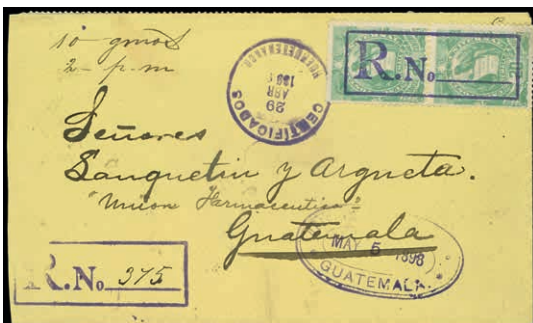 10 gmos
2 - p. m
CERTIFICADOS
HUEHUETENANGO
29
ABR
189
R. No
Señores
Sanquetin y Argueta.
"Union Farmaceutica"
Guatemala
MAY 5 1898
GUATEMALA.
R. No 375